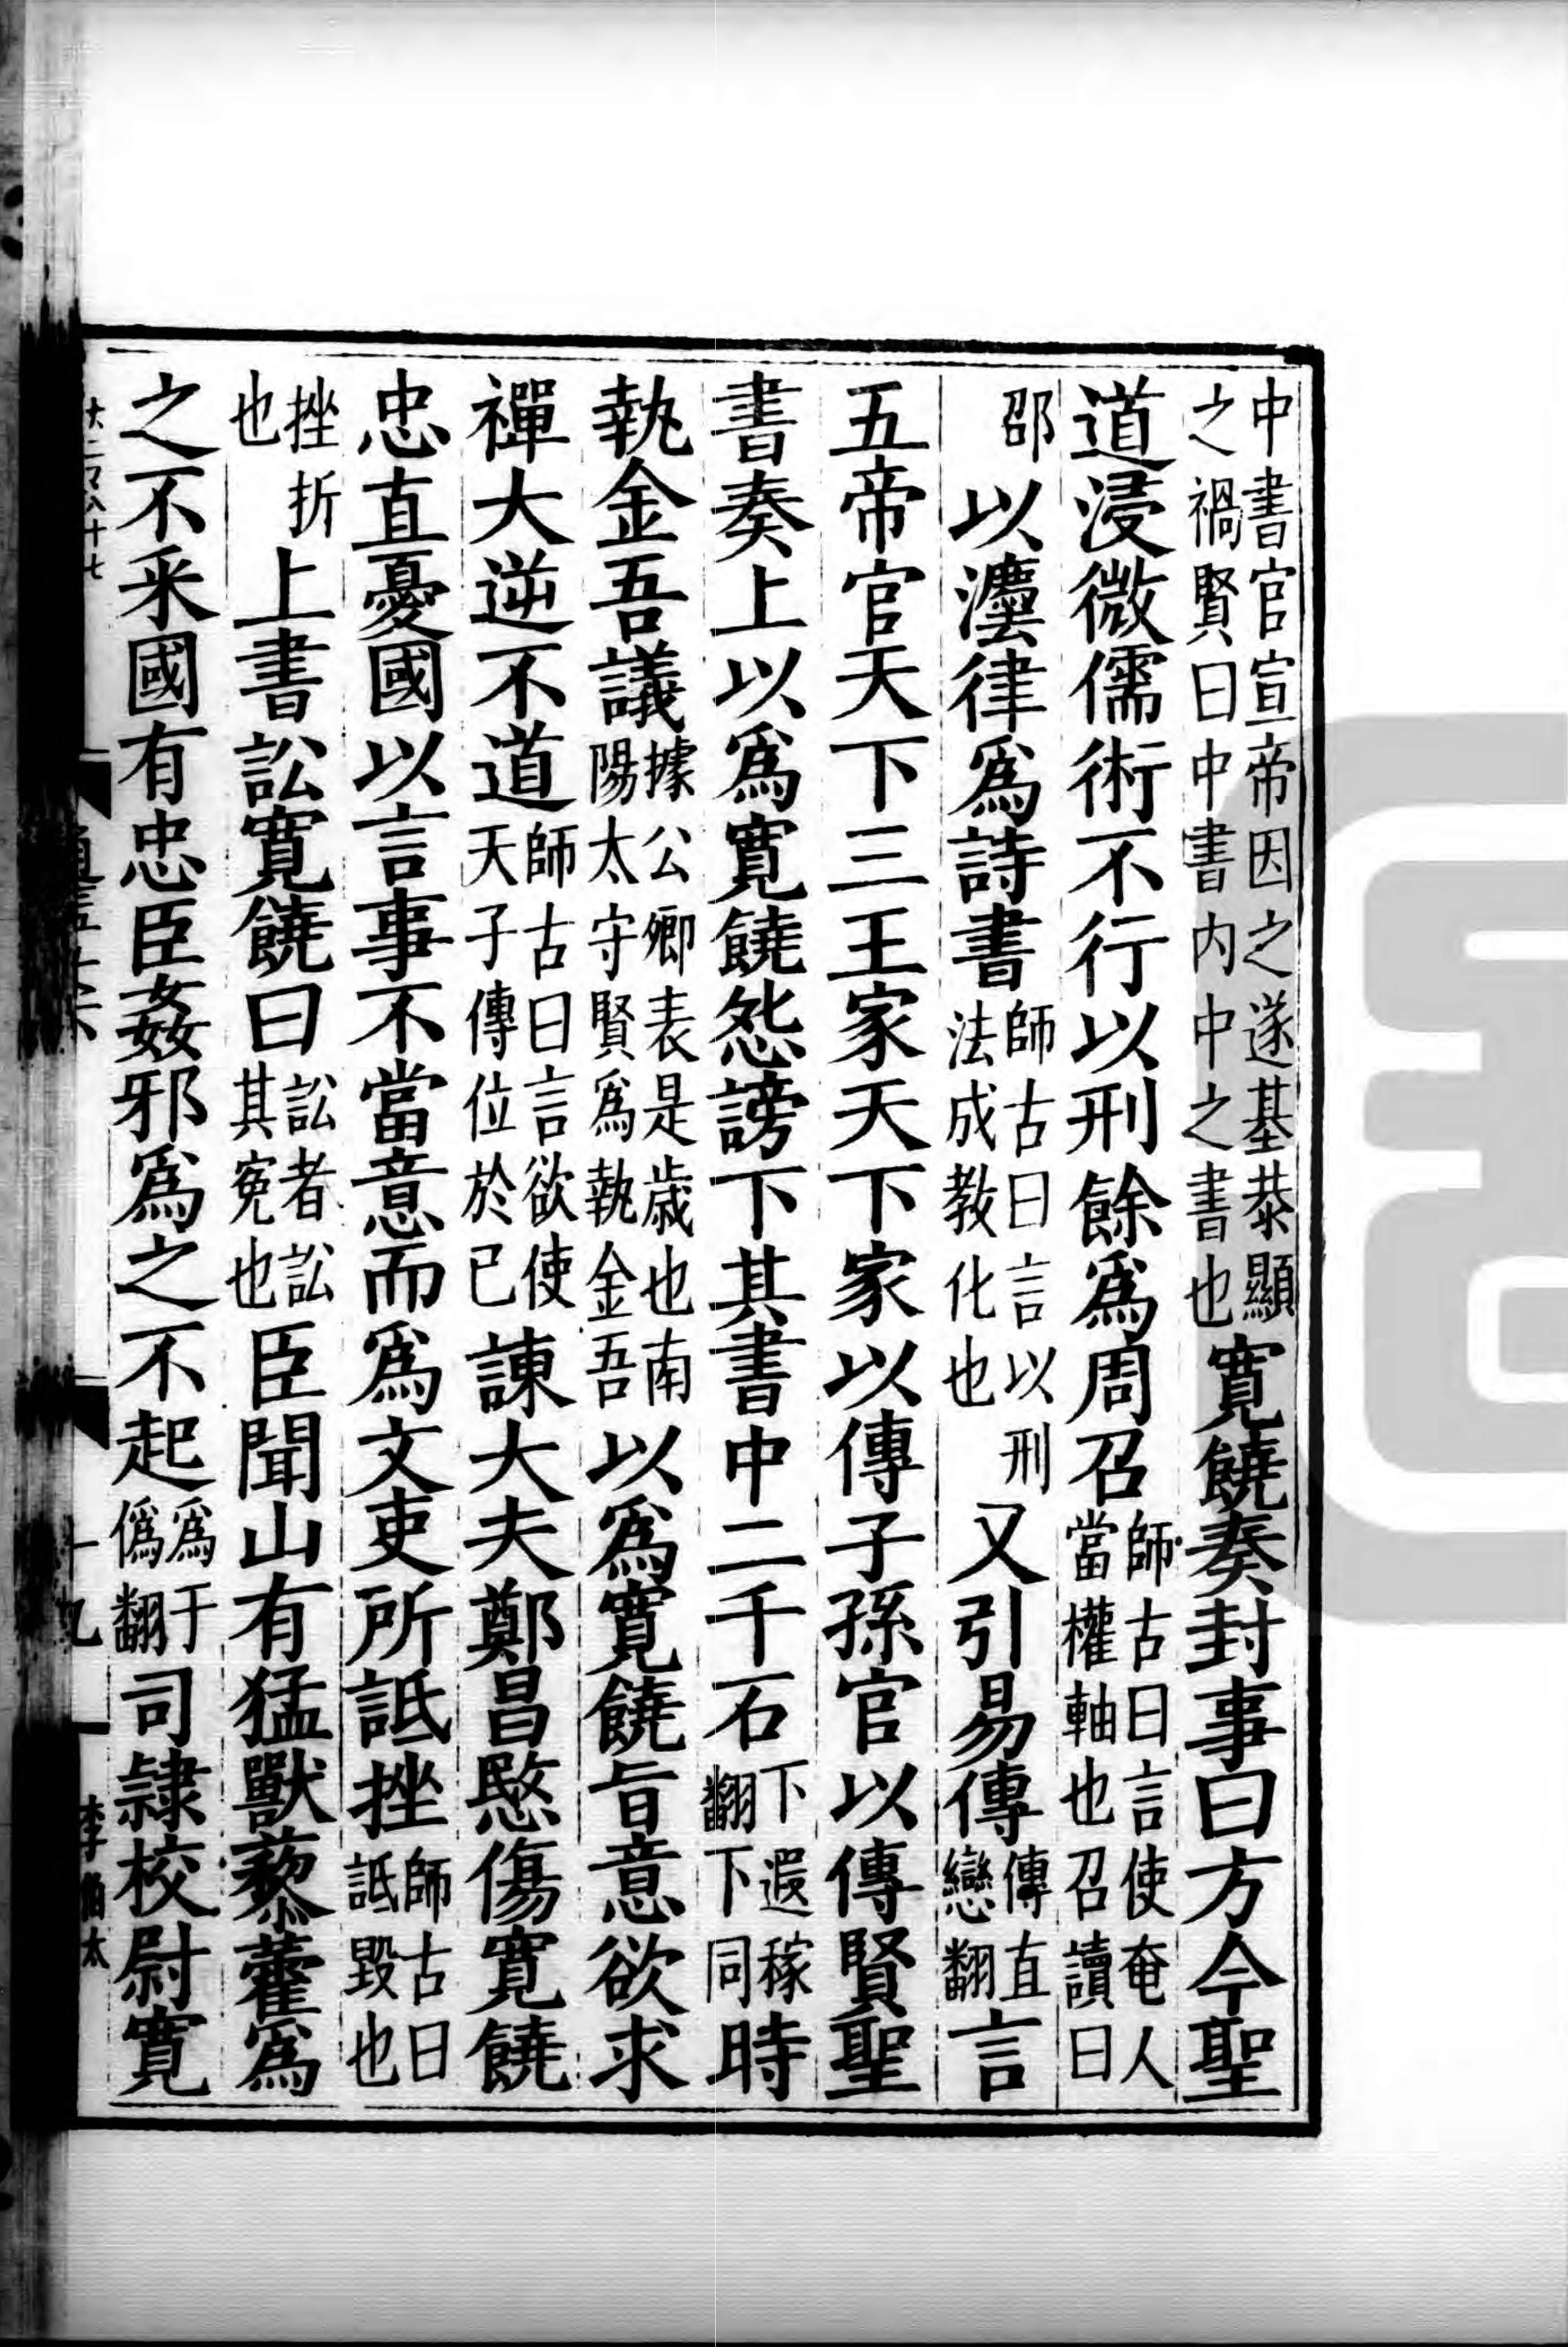 中書官宣帝因之遂基恭顯之禍賢曰中書内中之書也寛饒奏封事曰方今聖
道浸微儒術不行以刑餘爲周召師古曰言使奄人當權軸也召讀曰
邵以灋律爲詩書師古曰言以刑法成教化也又引易傳傳直戀翻言
五帝官天下三王家天下家以傳子孫官以傳賢聖
書奏上以爲寛饒怨謗下其書中二千石下遐稼翻下同時
執金吾議據公卿表是歳也南陽太守賢爲執金吾以爲寛饒旨意欲求
禪大逆不道師古曰言欲使天子傳位於已諫大夫鄭昌愍傷寛饒
忠直憂國以言事不當意而爲文吏所詆挫師古曰詆毀也
挫折也上書訟寛饒曰訟者訟其寃也臣聞山有猛獸藜藿爲
之不采國有忠臣姦邪爲之不起爲于僞翻司隷校尉寛
十九
李伯太